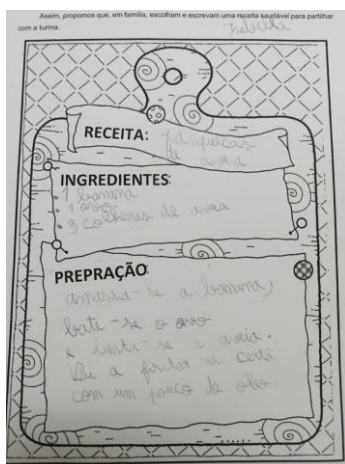 Assim, propomos que, em família, escolham e escrevam uma receita saudável para partilhar
com a turma.
RECEITA: panquecas
de aveia
INGREDIENTES:
1 banana
1 ovo
3 colheres de aveia
PREPRAÇÃO:
amassa-se a banana,
bate-se o ovo
e junta-se a aveia.
Vai a fritar na certã
com um pouco de óleo.